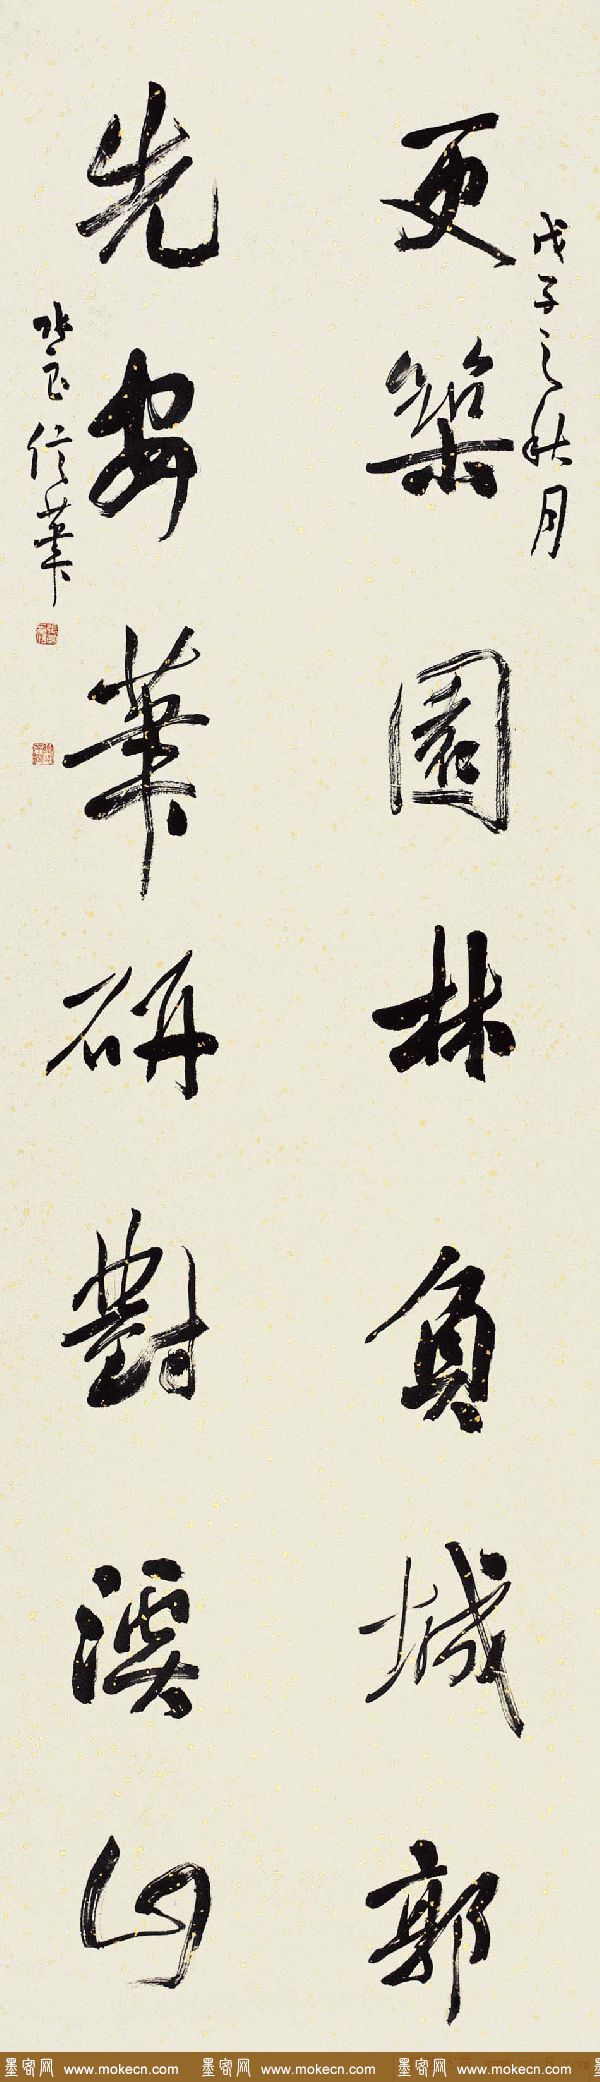 戊子之秋月
更築園林負城郭
先安筆研對溪山
信筆
墨客网 www.mokecn.com 墨客网 www.mokecn.com 墨客网 www.mokecn.com